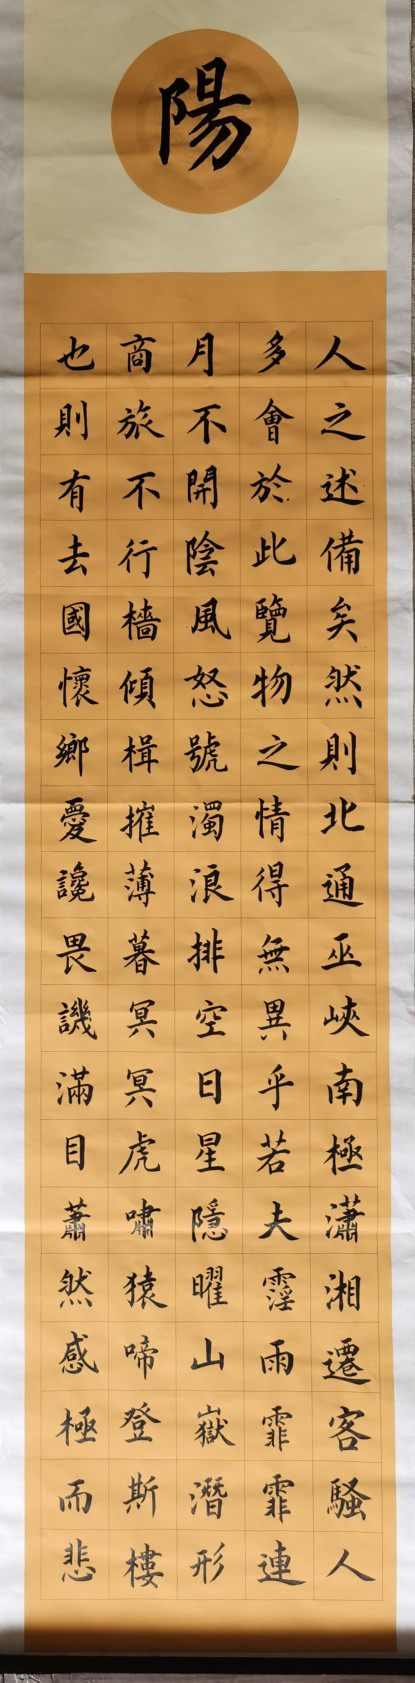 陽
人之述備矣然則北通巫峽南極瀟湘遷客騷人
多會於此覽物之情得無異乎若夫霪雨霏霏連
月不開陰風怒號濁浪排空日星隱曜山嶽潛形
商旅不行檣傾楫摧薄暮冥冥虎嘯猿啼登斯樓
也則有去國懷鄉憂讒畏譏滿目蕭然感極而悲